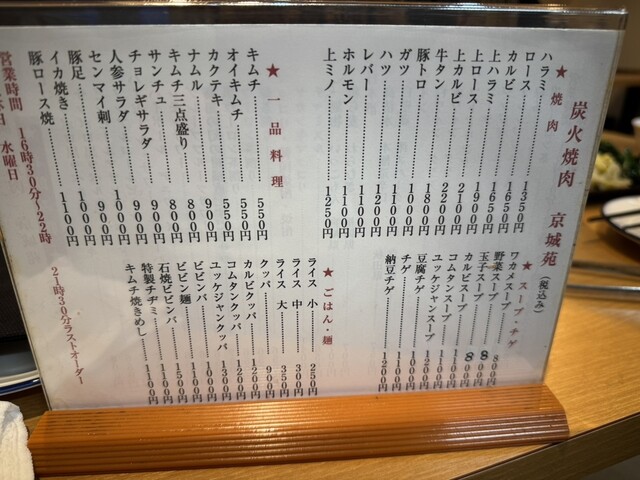 炭火焼肉 京城苑 (税込み)
★ 焼肉
ハラミ……1350円
ロース……1650円
カルビ……1650円
上ハラミ……1900円
上ロース……2100円
上カルビ……2200円
牛タン……1800円
豚トロ……1000円
ガツ……1100円
ハツ……1200円
レバー……1100円
ホルモン……1100円
上ミノ……1250円
★ スープ・チゲ
ワカメスープ……800円
野菜スープ……800円
玉子スープ……800円
カルビスープ……1100円
コムタンスープ……1100円
ユッケジャンスープ……1200円
豆腐チゲ……1100円
チゲ……1100円
納豆チゲ……1200円
★ 一品料理
キムチ……550円
オイキムチ……550円
カクテキ……550円
ナムル……900円
キムチ三点盛り……800円
サンチュ……800円
チョレギサラダ……900円
人参サラダ……900円
センマイ刺……1000円
豚足……900円
イカ焼き……1000円
豚ロース焼……1100円
★ ごはん・麺
ライス 小……250円
ライス 中……300円
ライス 大……350円
クッパ……900円
カルビクッパ……1200円
コムタンクッパ……1200円
ユッケジャンクッパ……1300円
ビビンバ……1000円
ビビン麺……1100円
石焼ビビンバ……1500円
特製チヂミ……1100円
キムチ焼きめし……1100円
営業時間 16時30分〜22時 21時30分ラストオーダー
休日 水曜日